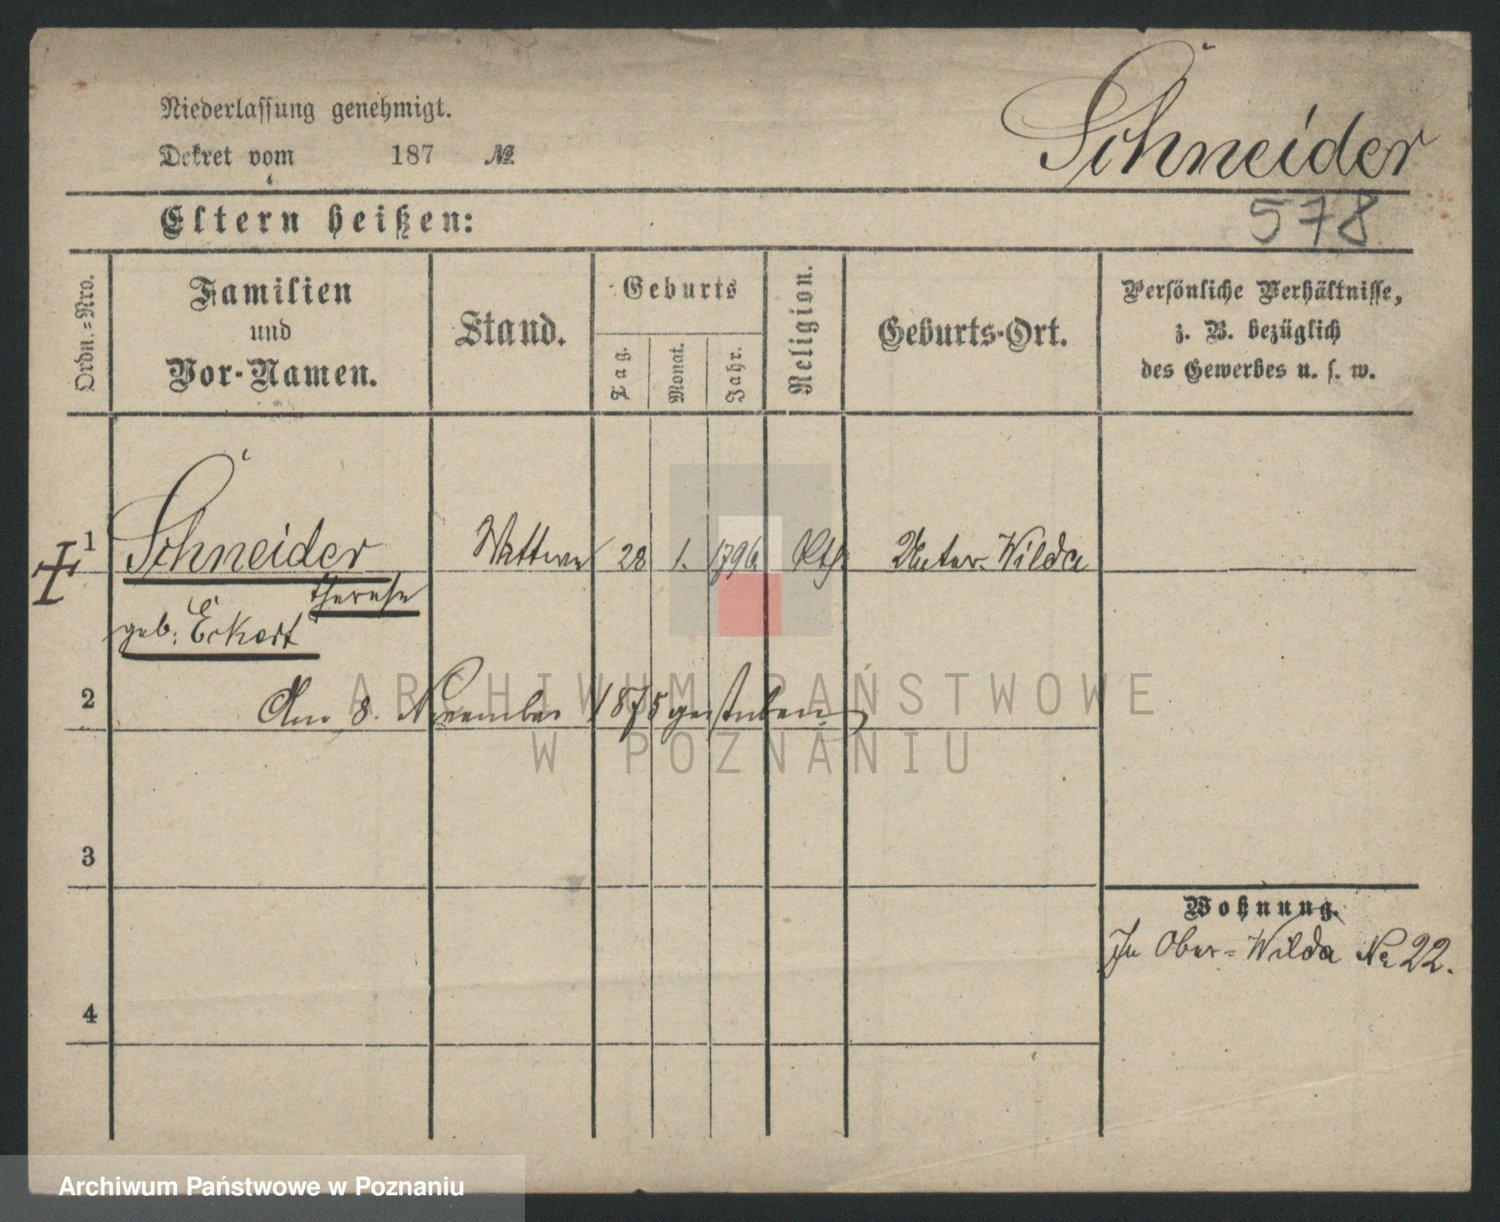 Niederlassung genehmigt.
Schneider
Dekret vom 187 №
Eltern heißen:
578
Ordn.=Nro.
Familien
und
Vor-Namen.
Stand.
Geburts
Tag.
Monat.
Jahr.
Religion.
Geburts-Ort.
Persönliche Verhältnisse,
z. B. bezüglich
des Gewerbes u. s. w.
1 Schneider Wittwe 28 1. 1796 Kth. Unter-Wilda
Therese
geb. Eckert
2 Am 8. November 1875 gestorben
ARCHIWUM PAŃSTWOWE
W POZNANIU
3
Wohnung.
In Ober-Wilda No 22.
4
Archiwum Państwowe w Poznaniu